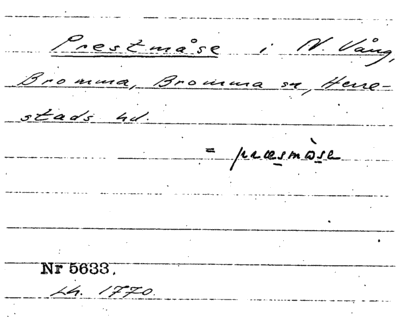 Prestmåse i N. Vång,
Bromma, Bromma sn, Herre-
stads hd.
= præsmòse
Nr 5633.
Lh. 1770.